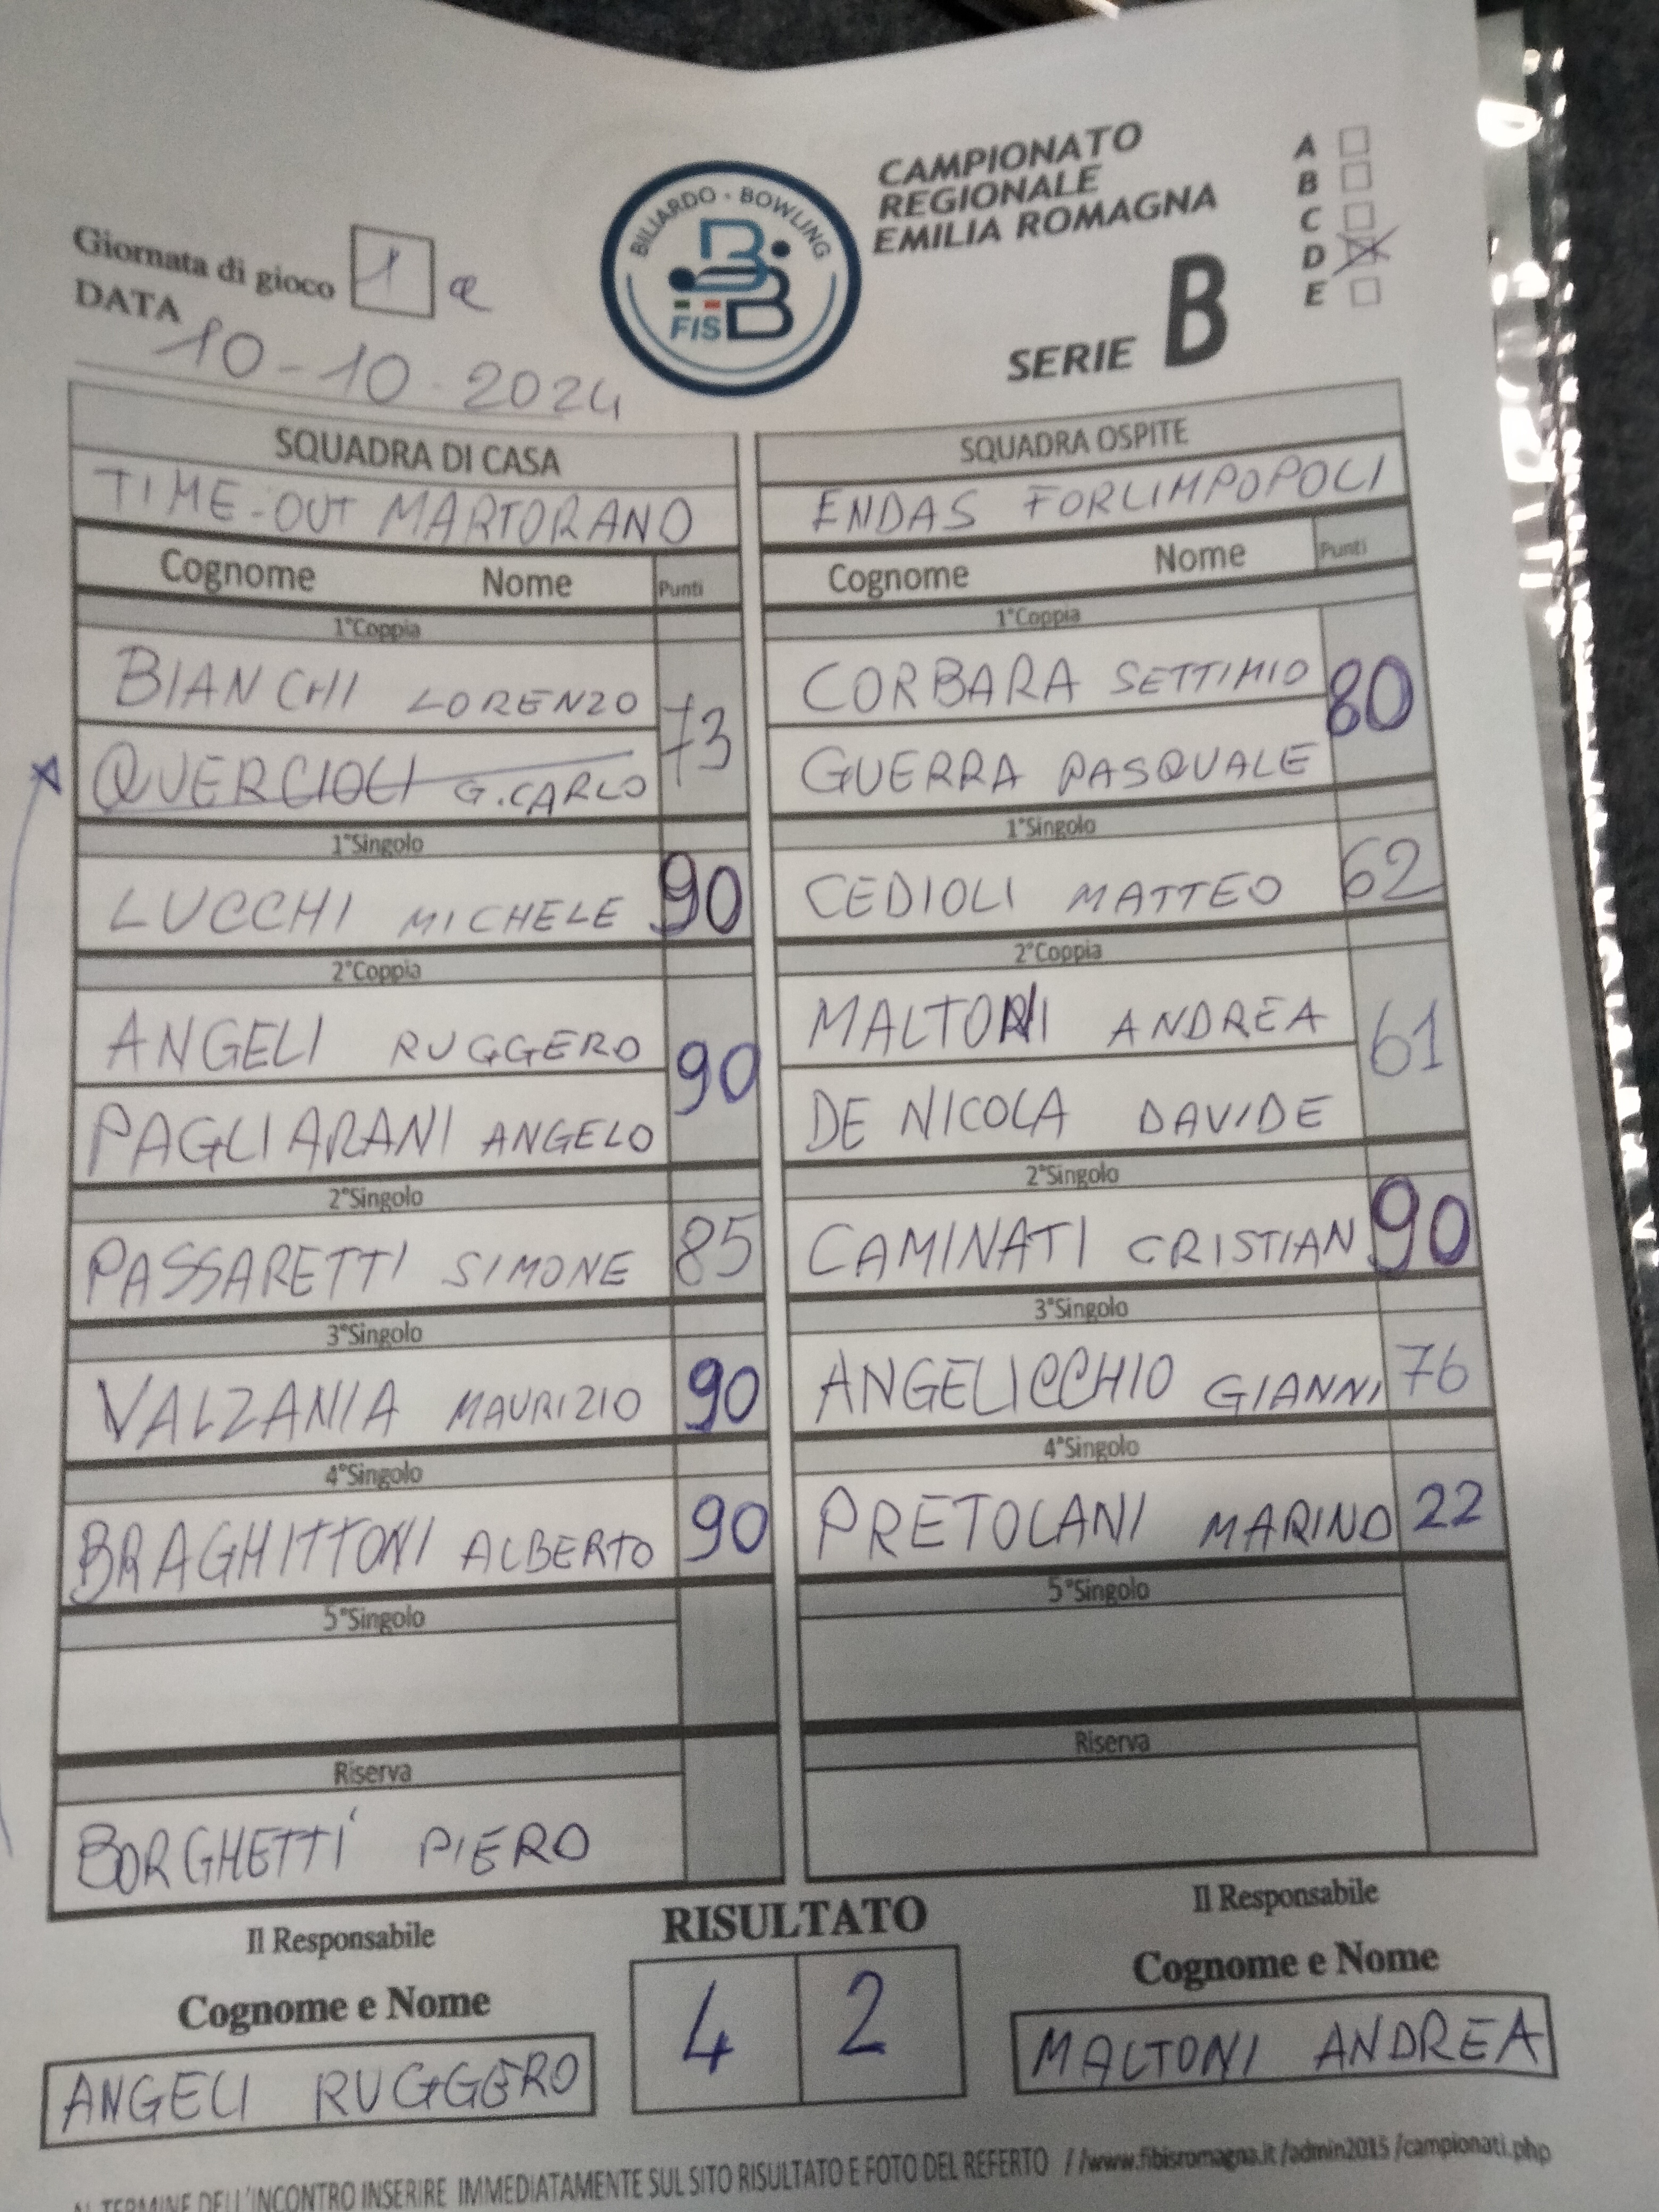 Giornata di gioco 1 a
DATA 10-10-2024
BILIARDO - BOWLING
FISBB
CAMPIONATO
REGIONALE
EMILIA ROMAGNA
SERIE B
A
B
C
D X
E
SQUADRA DI CASA
TIME-OUT MARTORANO
Cognome Nome Punti
1°Coppia
BIANCHI LORENZO 73
QUERCIOLI G.CARLO
1°Singolo
LUCCHI MICHELE 90
2°Coppia
ANGELI RUGGERO 90
PAGLIARANI ANGELO
2°Singolo
PASSARETTI SIMONE 85
3°Singolo
VALZANIA MAURIZIO 90
4°Singolo
BRAGHITTONI ALBERTO 90
5°Singolo
Riserva
BORGHETTI PIERO
SQUADRA OSPITE
ENDAS FORLIMPOPOLI
Cognome Nome Punti
1°Coppia
CORBARA SETTIMIO 80
GUERRA PASQUALE
1°Singolo
CEDIOLI MATTEO 62
2°Coppia
MALTONI ANDREA 61
DE NICOLA DAVIDE
2°Singolo
CAMINATI CRISTIAN 90
3°Singolo
ANGELICCHIO GIANNI 76
4°Singolo
PRETOLANI MARINO 22
5°Singolo
Riserva
Il Responsabile
Cognome e Nome
ANGELI RUGGERO
RISULTATO
4 2
Il Responsabile
Cognome e Nome
MALTONI ANDREA
AL TERMINE DELL'INCONTRO INSERIRE IMMEDIATAMENTE SUL SITO RISULTATO E FOTO DEL REFERTO //www.fibisromagna.it/admin2015/campionati.php